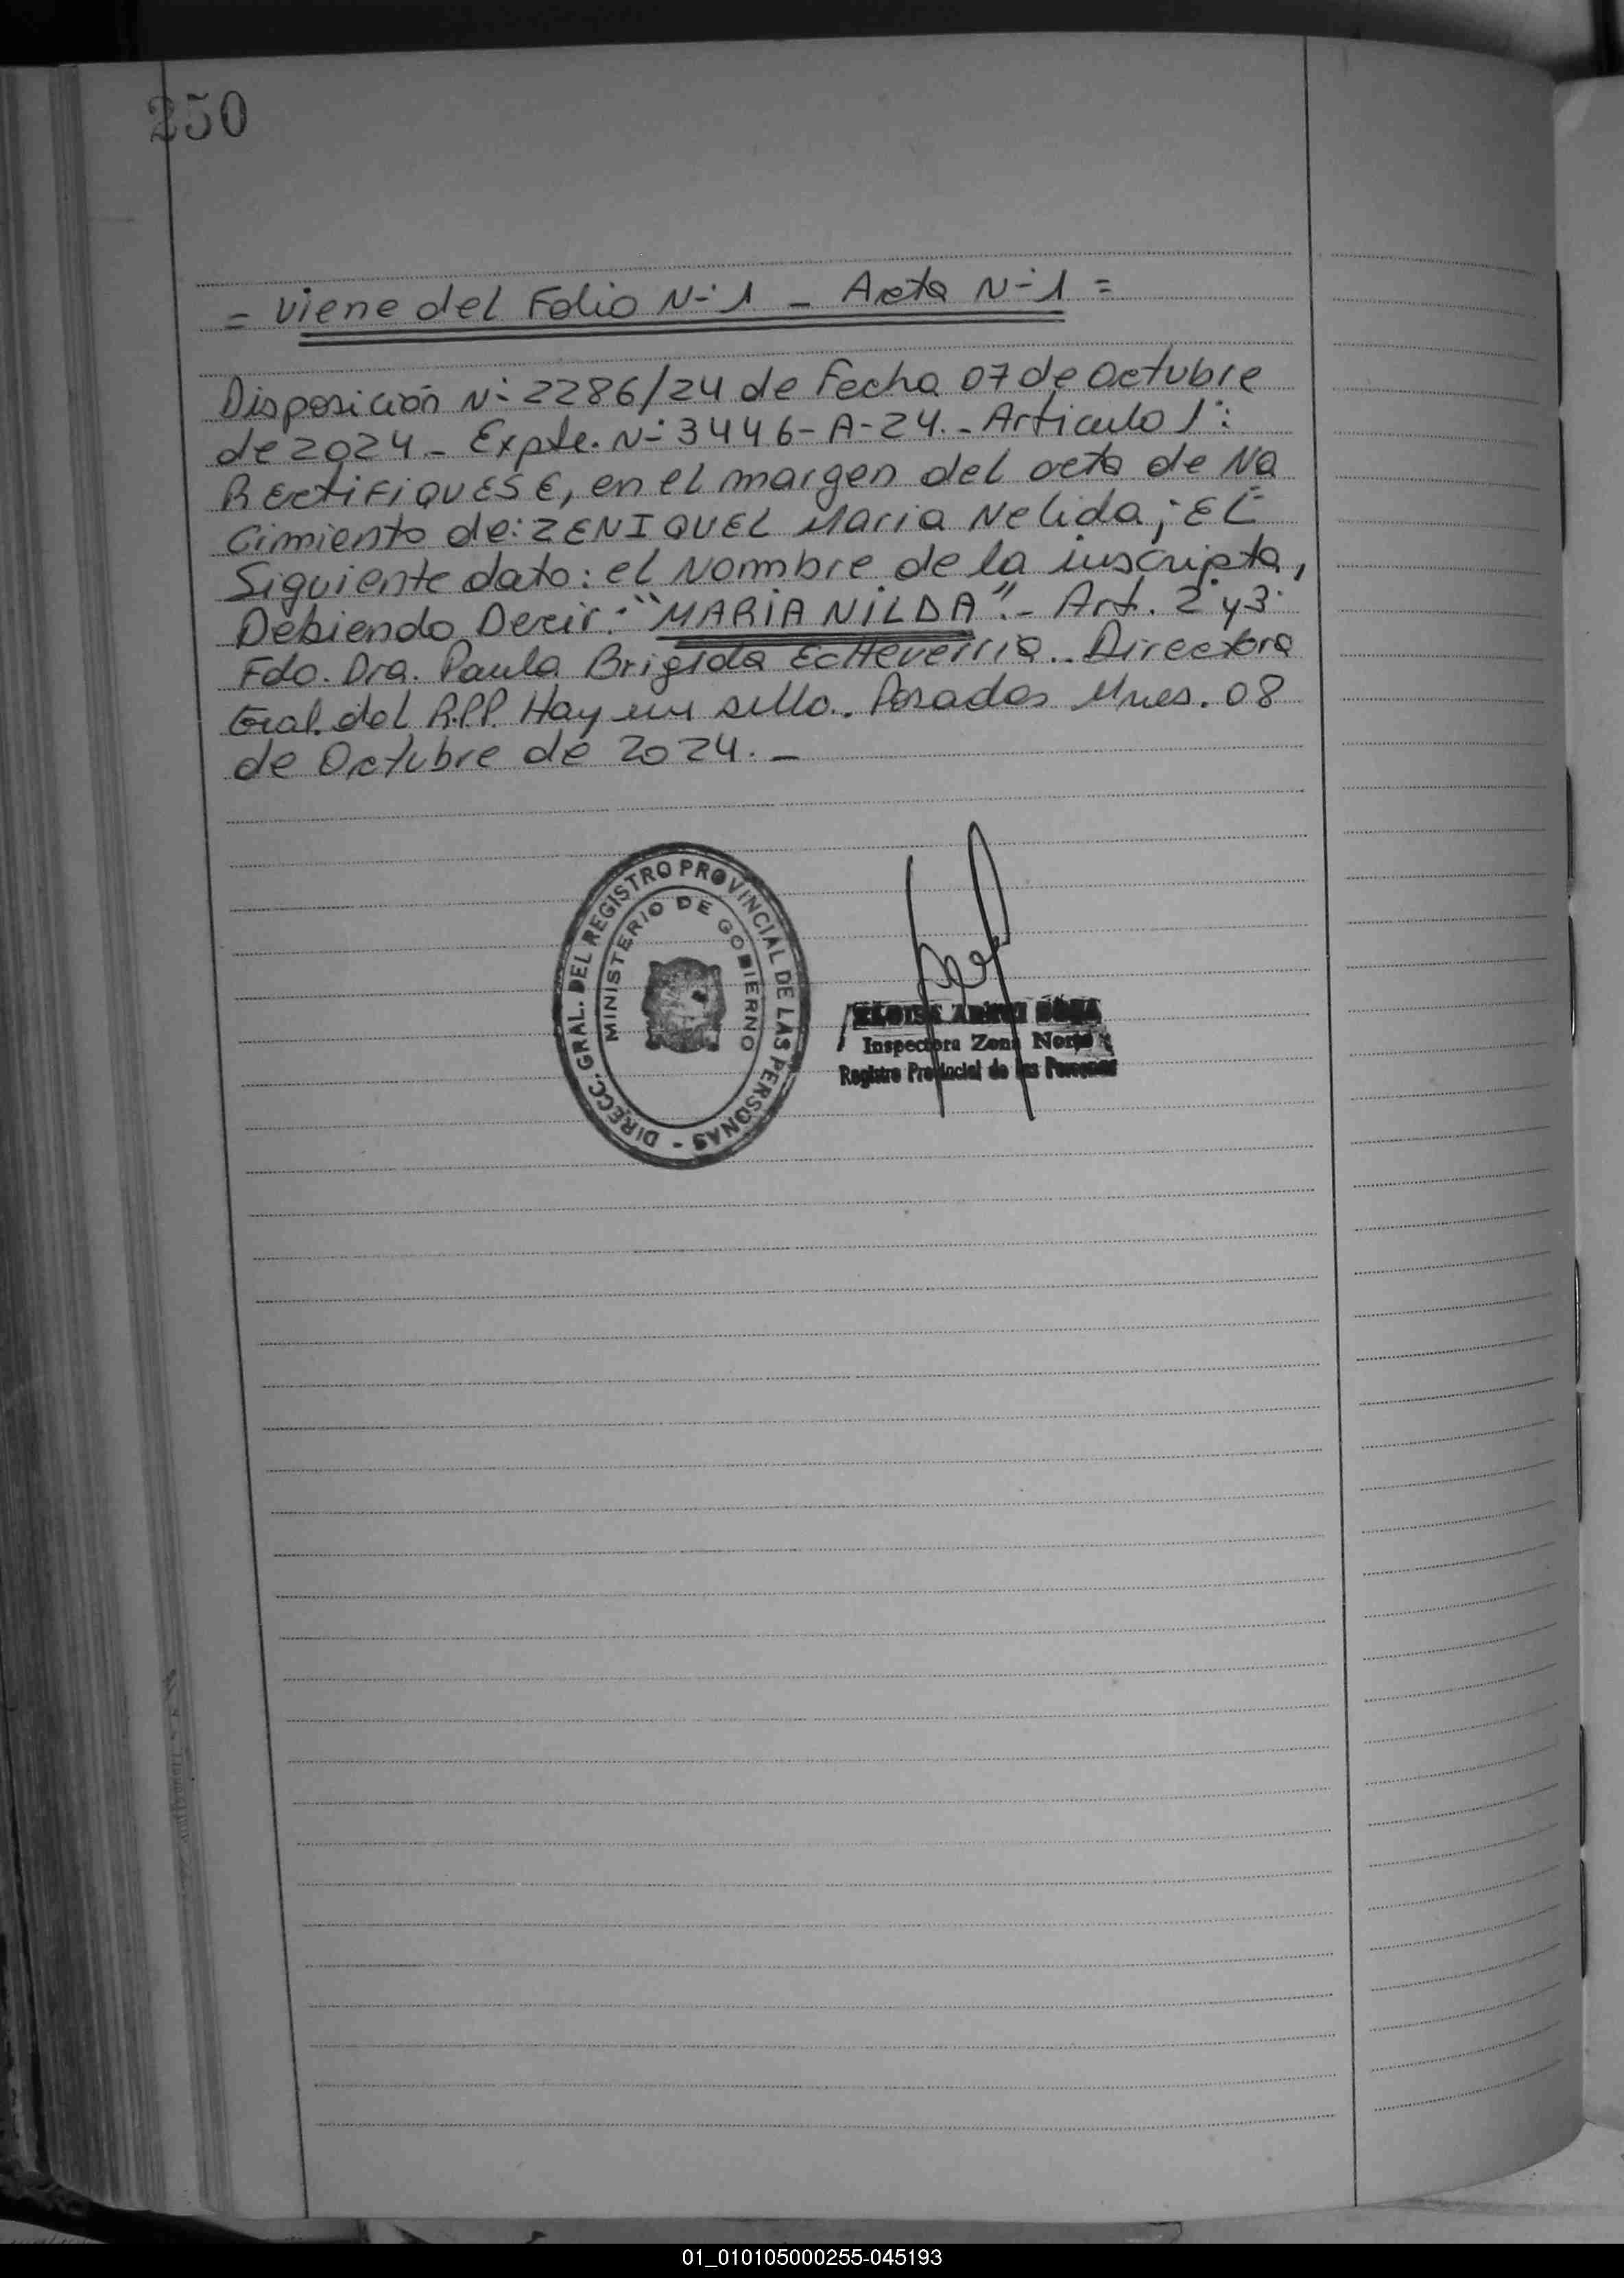 250
= Viene del Folio N-º 1 - Acta N-º 1 =
Disposición Nº 2286/24 de Fecha 07 de Octubre
de 2024 - Expte. Nº 3446-A-24. - Articulo 1º:
RECTIFIQUESE, en el margen del acta de Na
Cimiento de: ZENIQUEL Maria Nelida; EL
Siguiente dato: el Nombre de la inscripta,
Debiendo Decir: "MARIA NILDA". - Art. 2º y 3º
Fdo. Dra. Paula Brigida Echeverria. - Directora
Gral. del R.P.P. Hay un sello. Posadas Mnes. 08
de Octubre de 2024. -
DIRECC. GRAL. DEL REGISTRO PROVINCIAL DE LAS PERSONAS -
MINISTERIO DE GOBIERNO
Inspectora Zona Norte
Registro Provincial de las Personas
01_010105000255-045193